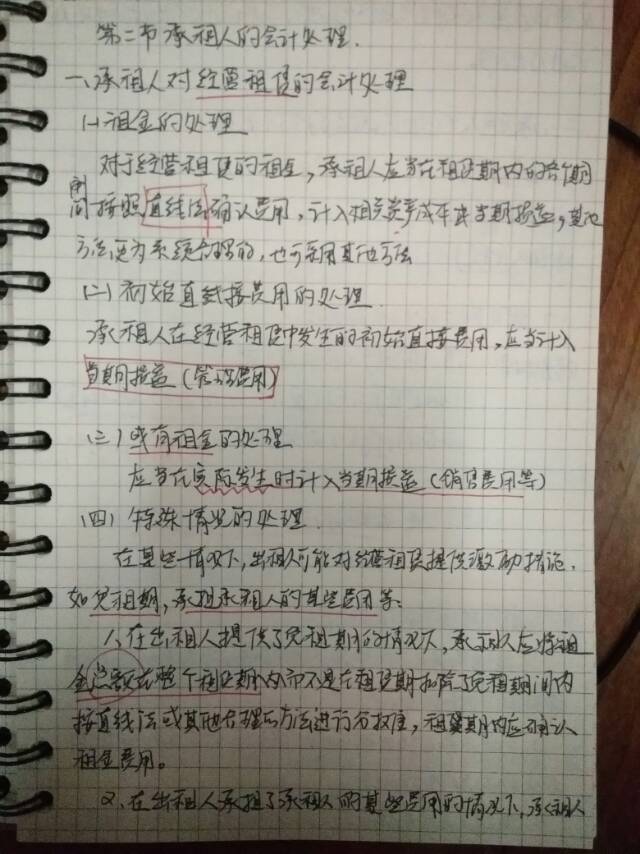 第二节 承租人的会计处理.
一、承租人对经营租赁的会计处理
(一)租金的处理
对于经营租赁的租金,承租人应当在租赁期内的各个期
间按照直线法确认费用,计入相关资产成本或当期损益,其他
方法更为系统合理的,也可采用其他方法
(二)初始直接费用的处理.
承租人在经营租赁中发生的初始直接费用,应当计入
当期损益(管理费用)
(三)或有租金的处理
应当在实际发生时计入当期损益(销售费用等)
(四)特殊情况的处理.
在某些情况下,出租人可能对经营租赁提供激励措施,
如免租期,承担承租人的某些费用等:
1、在出租人提供了免租期的情况下,承租人应将租
金总额在整个租赁期内而不是在租赁期扣除了免租期间内
按直线法或其他合理的方法进行分摊,租赁期内应确认
租金费用。
2、在出租人承担了承租人的某些费用的情况下,承租人